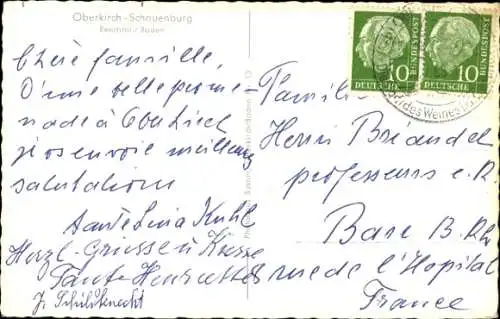 Oberkirch-Schauenburg
Renchtal / Baden
Chère famille,
D'une belle prome-
nade à Oberkirch
je vous envoie meilleures
salutations
Tante Lina Kuhl
Herzl. Grüsse u. Küsse
Tante Henriette
J. Schildknecht
10
DEUTSCHE
BUNDESPOST
10
DEUTSCHE
BUNDESPOST
des Weines
Familie
Herrn Briandel
professeurs e. R.
Barr B. Rh
rue de l'Hopital
France